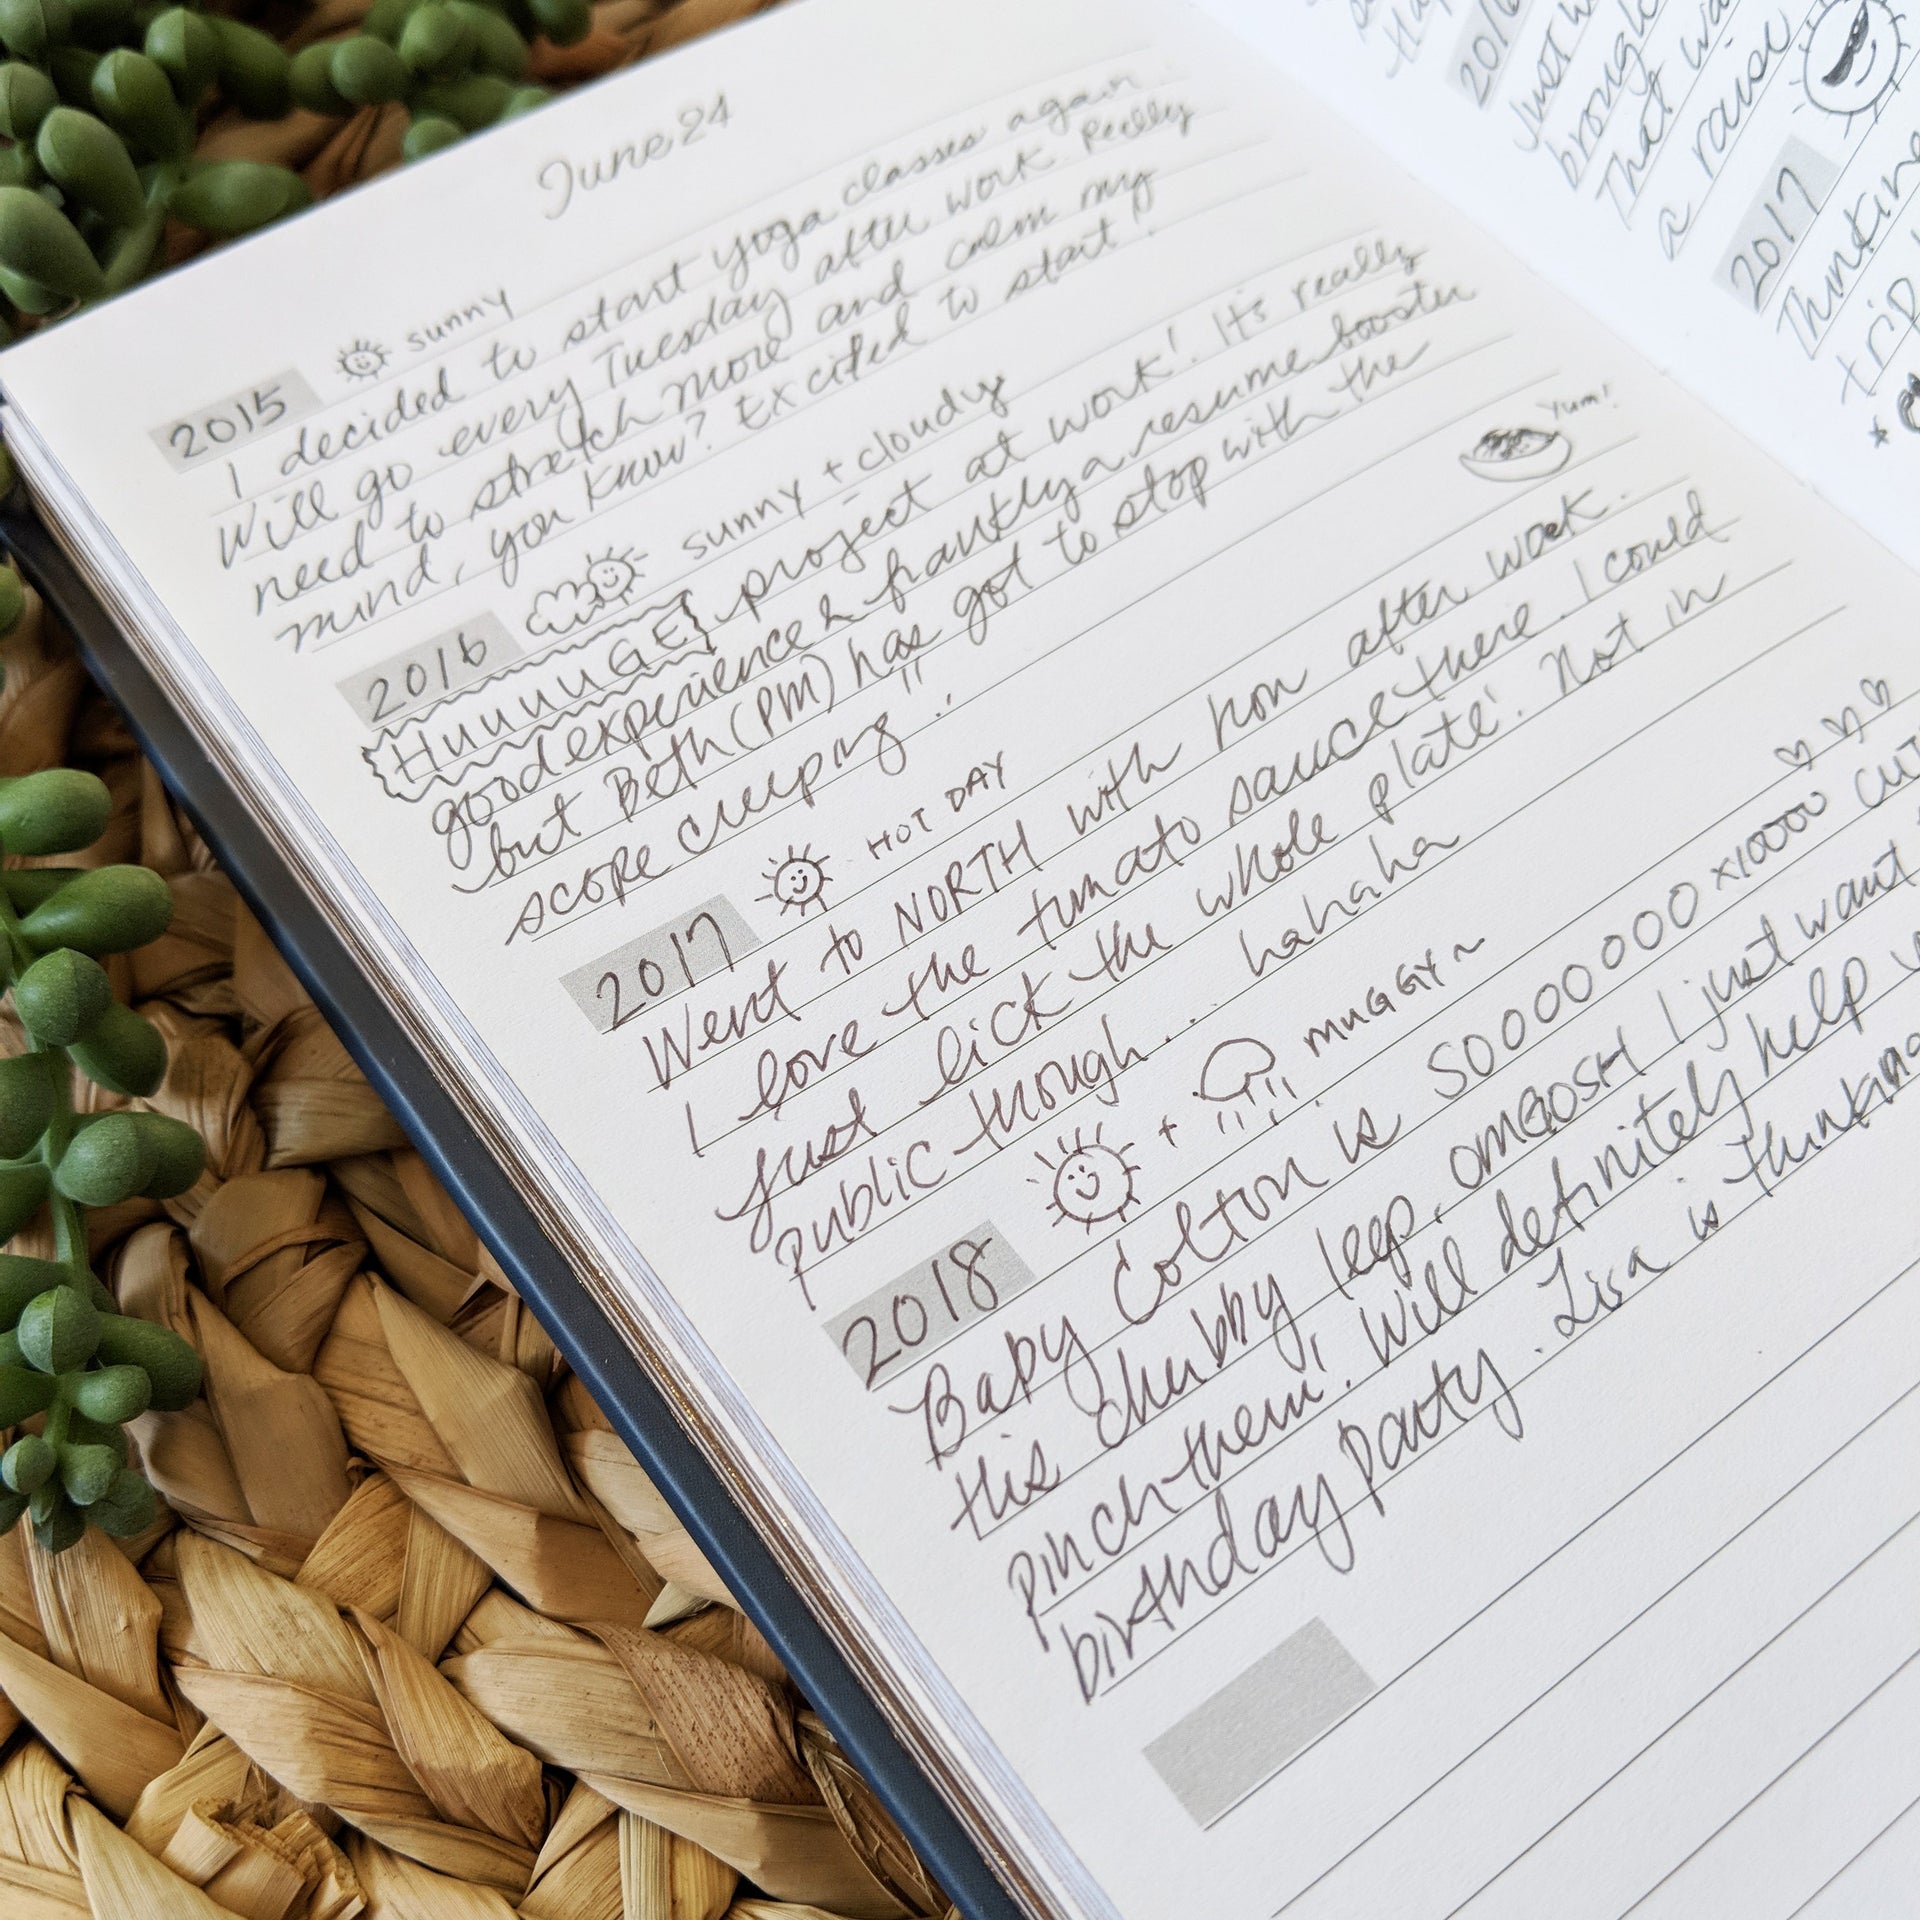 June 24
2015 sunny
I decided to start yoga classes again.
Will go every Tuesday after work. Really
need to stretch more and calm my
mind, you know? Excited to start!
2016 sunny + cloudy
HuuuuGE project at work! It's really
good experience & frankly a resume booster
but Beth (PM) has got to stop with the
scope creeping!!
Yum!
2017 HOT DAY
Went to NORTH with hon after work.
I love the tomato sauce there. I could
just lick the whole plate! Not in
public though... hahaha
2018 + MUGGY~
Baby Colton is SOOOOOOOO x10000
His chubby legs, OMGOSH I just want
pinch them! Will definitely help
birthday party. Lisa is thinking
2016
just
brought
That
a raise
2017
Thinking
trip